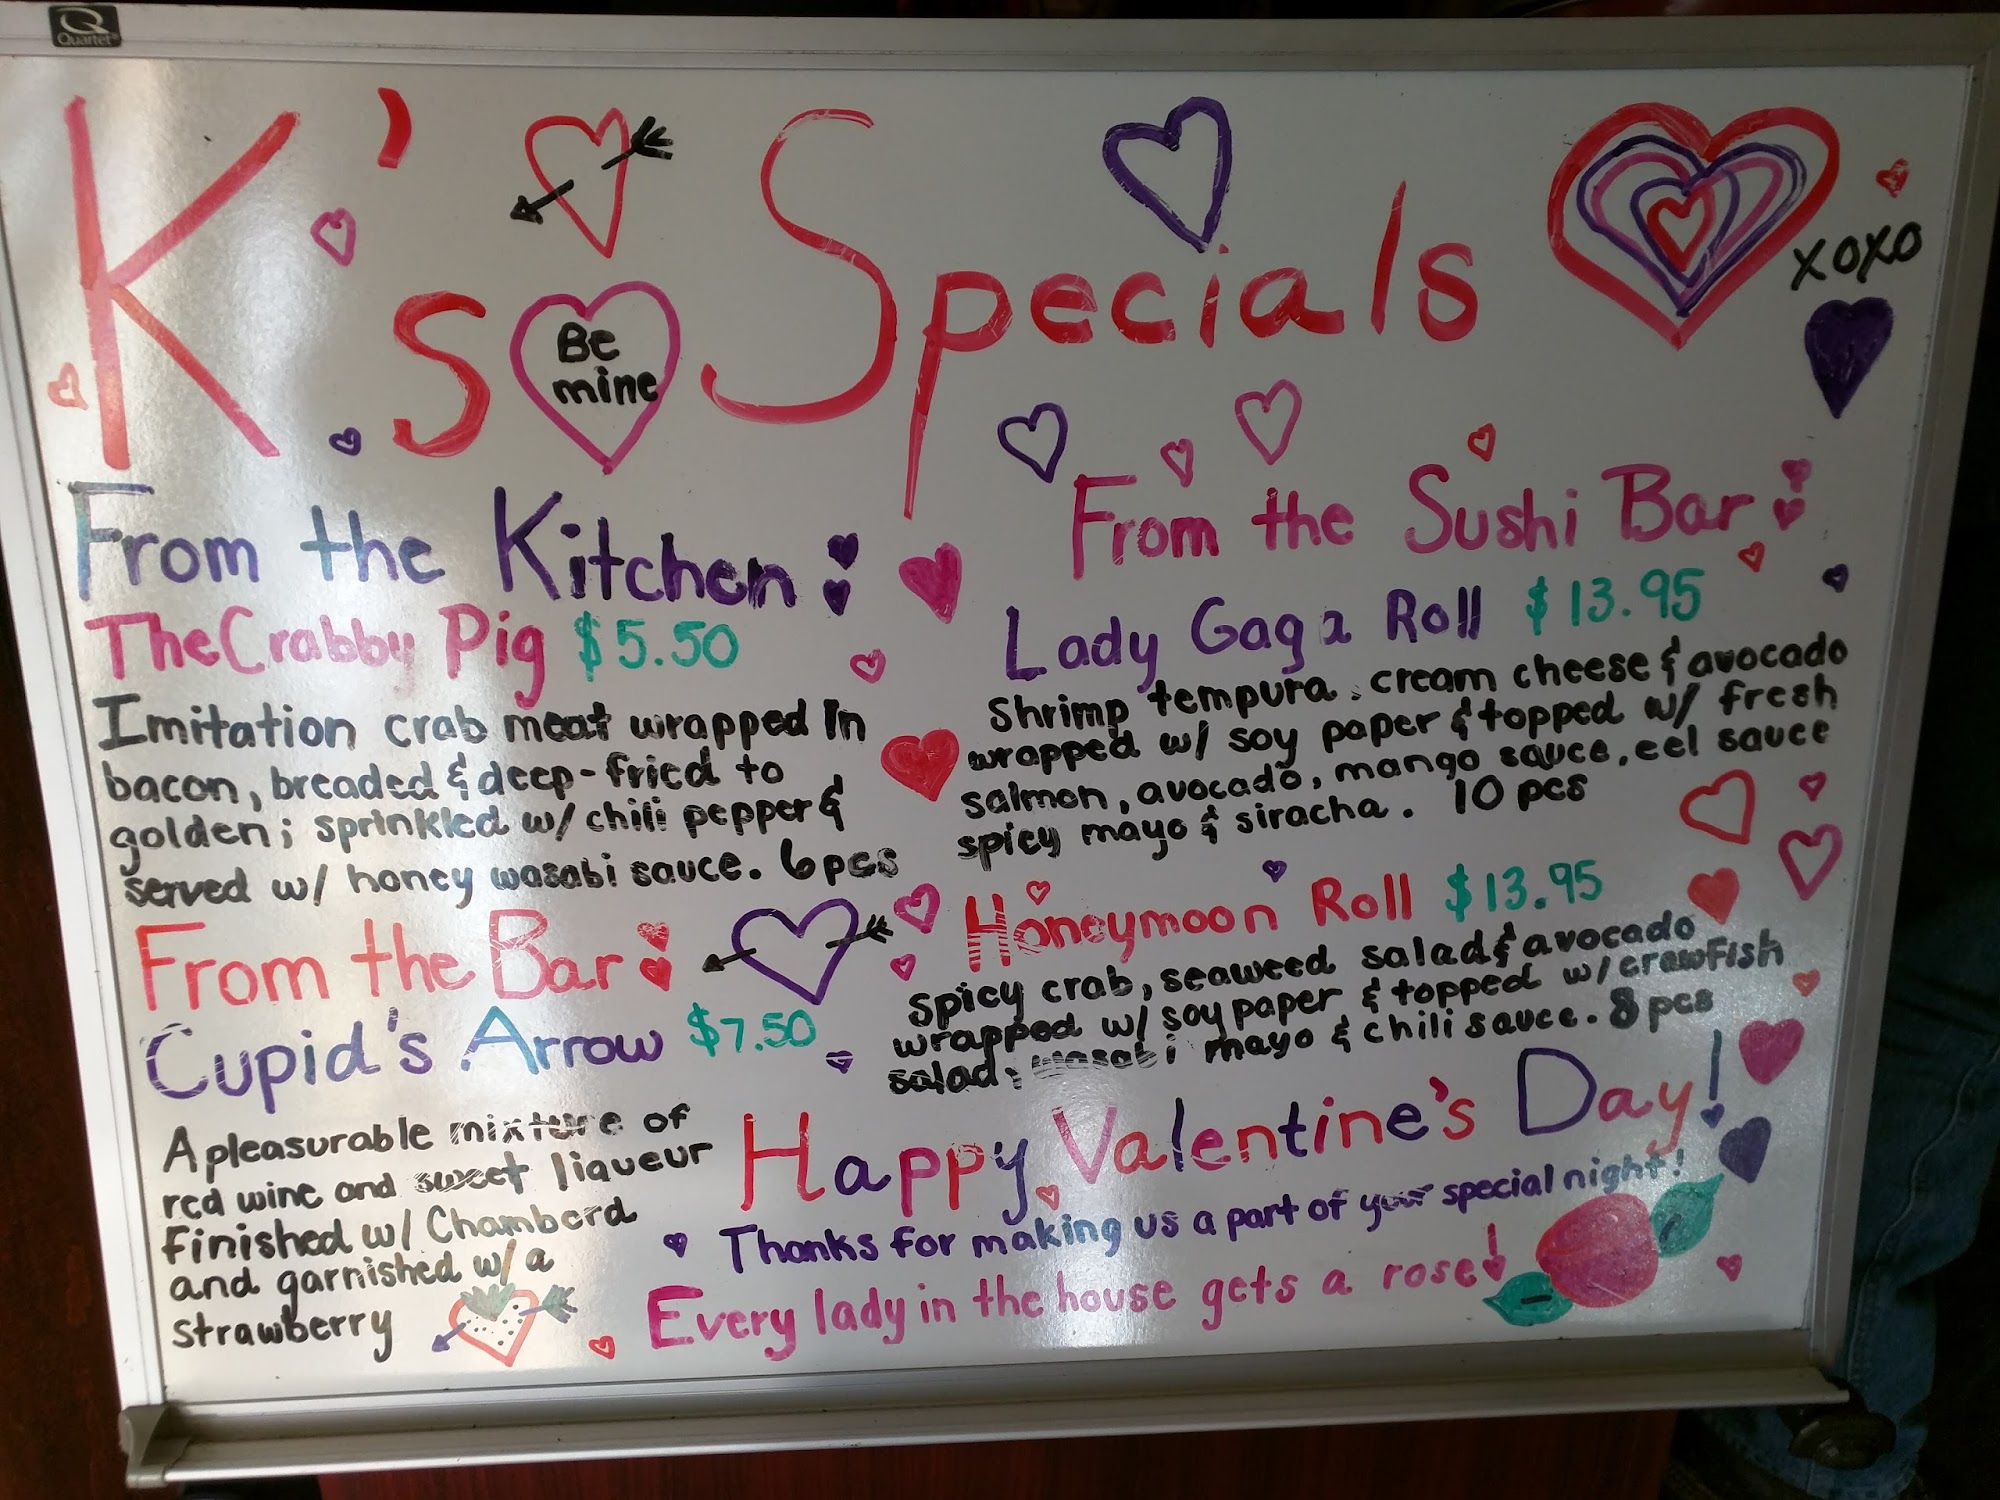 Quartet
K's Specials
Be
mine
xoxo
From the Kitchen
The Crabby Pig $5.50
Imitation crab meat wrapped in
bacon, breaded & deep-fried to
golden; sprinkled w/ chili pepper &
served w/ honey wasabi sauce. 6 pcs
From the Bar
Cupid's Arrow $7.50
A pleasurable mixture of
red wine and sweet liqueur
Finished w/ Chambord
and garnished w/ a
strawberry
From the Sushi Bar
Lady Gaga Roll $13.95
Shrimp tempura, cream cheese & avocado
wrapped w/ soy paper & topped w/ fresh
salmon, avocado, mango sauce, eel sauce
spicy mayo & siracha. 10 pcs
Honeymoon Roll $13.95
Spicy crab, seaweed salad & avocado
wrapped w/ soy paper & topped w/ crawfish
salad, wasabi mayo & chili sauce. 8 pcs
Happy Valentine's Day!
Thanks for making us a part of your special night!
Every lady in the house gets a rose!